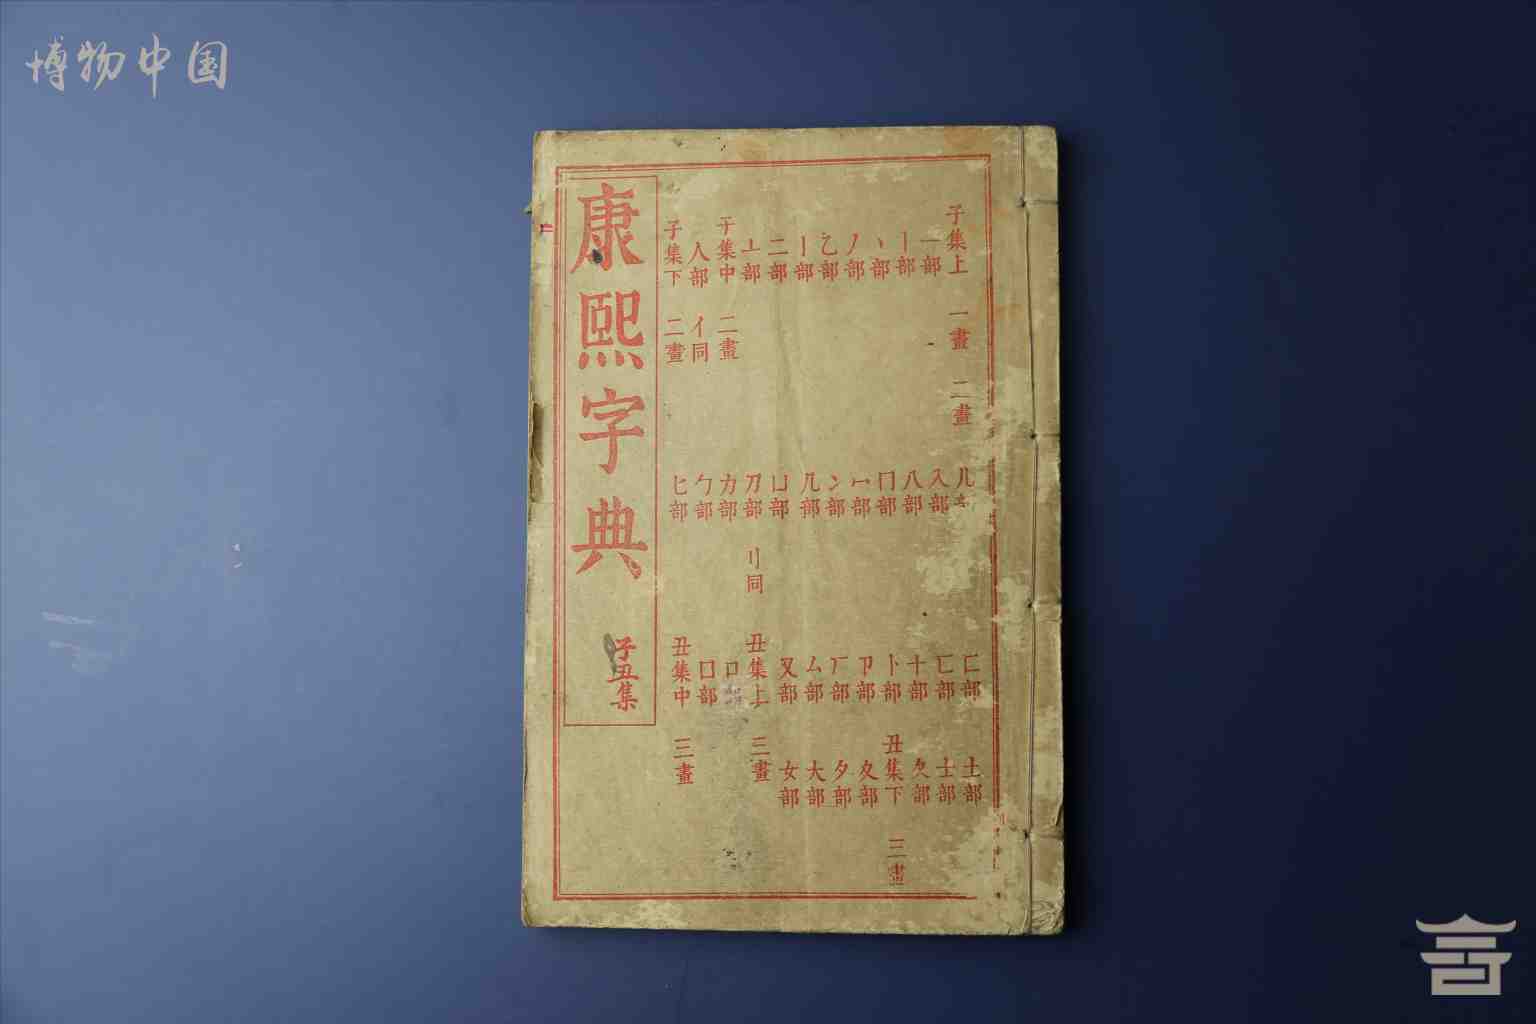 博物中国
康熙字典
子丑集
子集上 一畫 二畫
一部
丨部
丶部
丿部
乙部
亅部
二部
亠部
子集中 二畫
人部 亻同
子集下 二畫
儿部
入部
八部
冂部
冖部
冫部
几部
凵部
刀部 刂同
力部
勹部
匕部
匚部
匸部
十部
卜部
卩部
厂部
厶部
又部
丑集上 三畫
口部
囗部
丑集中 三畫
土部
士部
夂部
丑集下 三畫
夊部
夕部
大部
女部